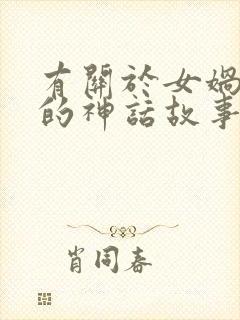 有關於女媧
的神話故事
肖同春